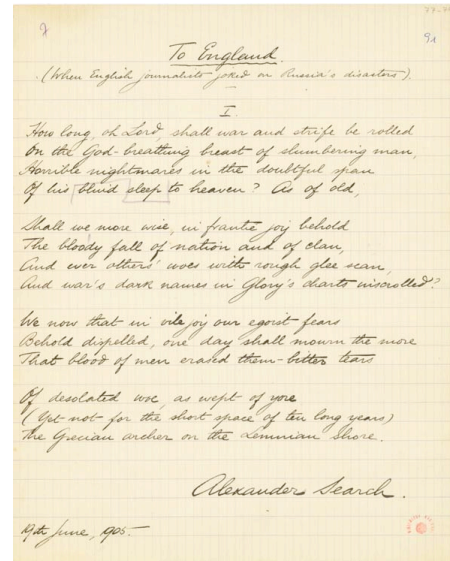 To England.
(When English journalists joked on Russia's disasters).
I.
How long, oh Lord, shall war and strife be rolled
On the God-breathing breast of slumbering man,
Horrible nightmares in the doubtful span
Of his blind sleep to heaven? As of old,
Shall we more wise, in frantic joy behold
The bloody fall of nation and of clan,
And ever others' woes with rough glee scan,
And war's dark names in Glory's charts inscrolled?
We now that in vile joy our egoist fears
Behold dispelled, one day shall mourn the more
That blood of men erased them – bitter tears
Of desolated woe, as wept of yore
(Yet not for the short space of ten long years)
The Grecian archer on the Lemnian shore.
Alexander Search.
19th June, 1905.